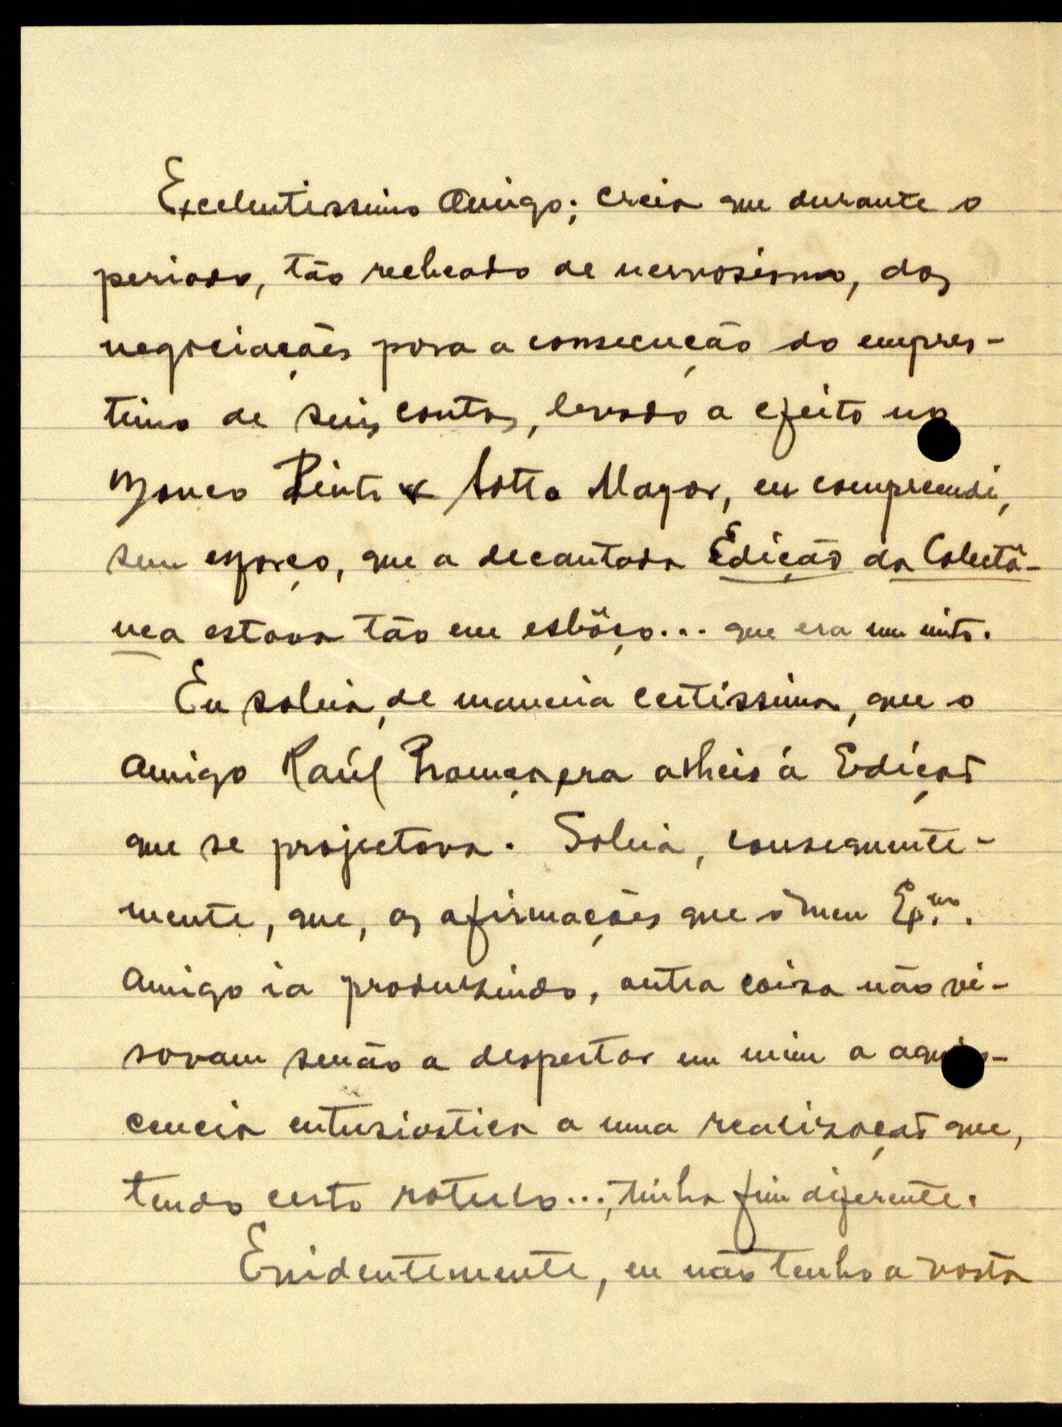 Excelentissimo Amigo; creia que durante o
periodo, tão recheado de nervosismo, das
negociações para a consecução do empres-
timo de seis contos, levado a efeito no
Banco Pinto & Sotto Mayor, eu compreendi,
sem esforço, que a decantada Edição da Colectâ-
nea estava tão em esbôço... que era um mito.
Eu sabia, de maneira certissima, que o
amigo Raúl Proença, era alheio á Edição
que se projectava. Sabia, consequente-
mente, que, as afirmações que o meu Exmo.
Amigo ia produzindo, outra coisa não vi-
savam senão a despertar em mim a
cencia entusiastica a uma realização que,
tendo certo rotulo..., tinha fim diferente.
Evidentemente, eu não tenho a vasta